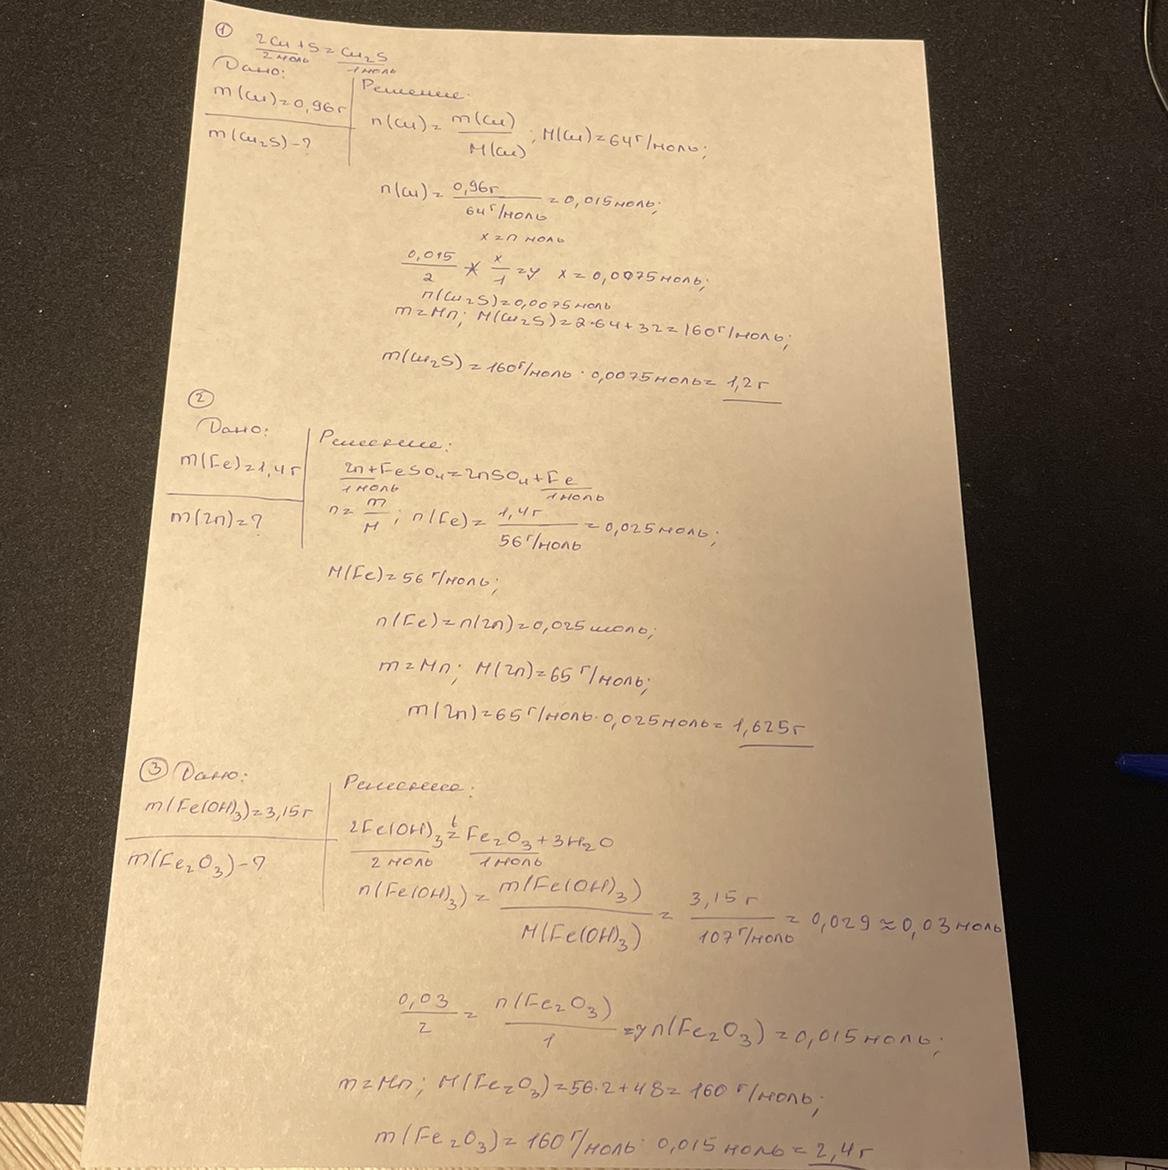 ①
2Cu + S = Cu₂S
2 моль 1 моль
Дано:
m(Cu) = 0,96 г
m(Cu₂S) - ?
Решение:
n(Cu) = m(Cu) / M(Cu) ; M(Cu) = 64 г/моль;
n(Cu) = 0,96 г / 64 г/моль = 0,015 моль;
x = n моль
0,015 / 2 * x / 1 => x = 0,0075 моль;
n(Cu₂S) = 0,0075 моль
m = Mn; M(Cu₂S) = 2·64 + 32 = 160 г/моль;
m(Cu₂S) = 160 г/моль · 0,0075 моль = 1,2 г
②
Дано:
m(Fe) = 1,4 г
m(Zn) = ?
Решение:
Zn + FeSO₄ = ZnSO₄ + Fe
1 моль 1 моль
n = m / M ; n(Fe) = 1,4 г / 56 г/моль = 0,025 моль;
M(Fe) = 56 г/моль;
n(Fe) = n(Zn) = 0,025 моль;
m = Mn; M(Zn) = 65 г/моль;
m(Zn) = 65 г/моль · 0,025 моль = 1,625 г
③ Дано:
m(Fe(OH)₃) = 3,15 г
m(Fe₂O₃) - ?
Решение:
2Fe(OH)₃ =ᵗ Fe₂O₃ + 3H₂O
2 моль 1 моль
n(Fe(OH)₃) = m(Fe(OH)₃) / M(Fe(OH)₃) = 3,15 г / 107 г/моль = 0,029 ≈ 0,03 моль
0,03 / 2 = n(Fe₂O₃) / 1 => n(Fe₂O₃) = 0,015 моль;
m = Mn; M(Fe₂O₃) = 56·2 + 48 = 160 г/моль;
m(Fe₂O₃) = 160 г/моль · 0,015 моль = 2,4 г